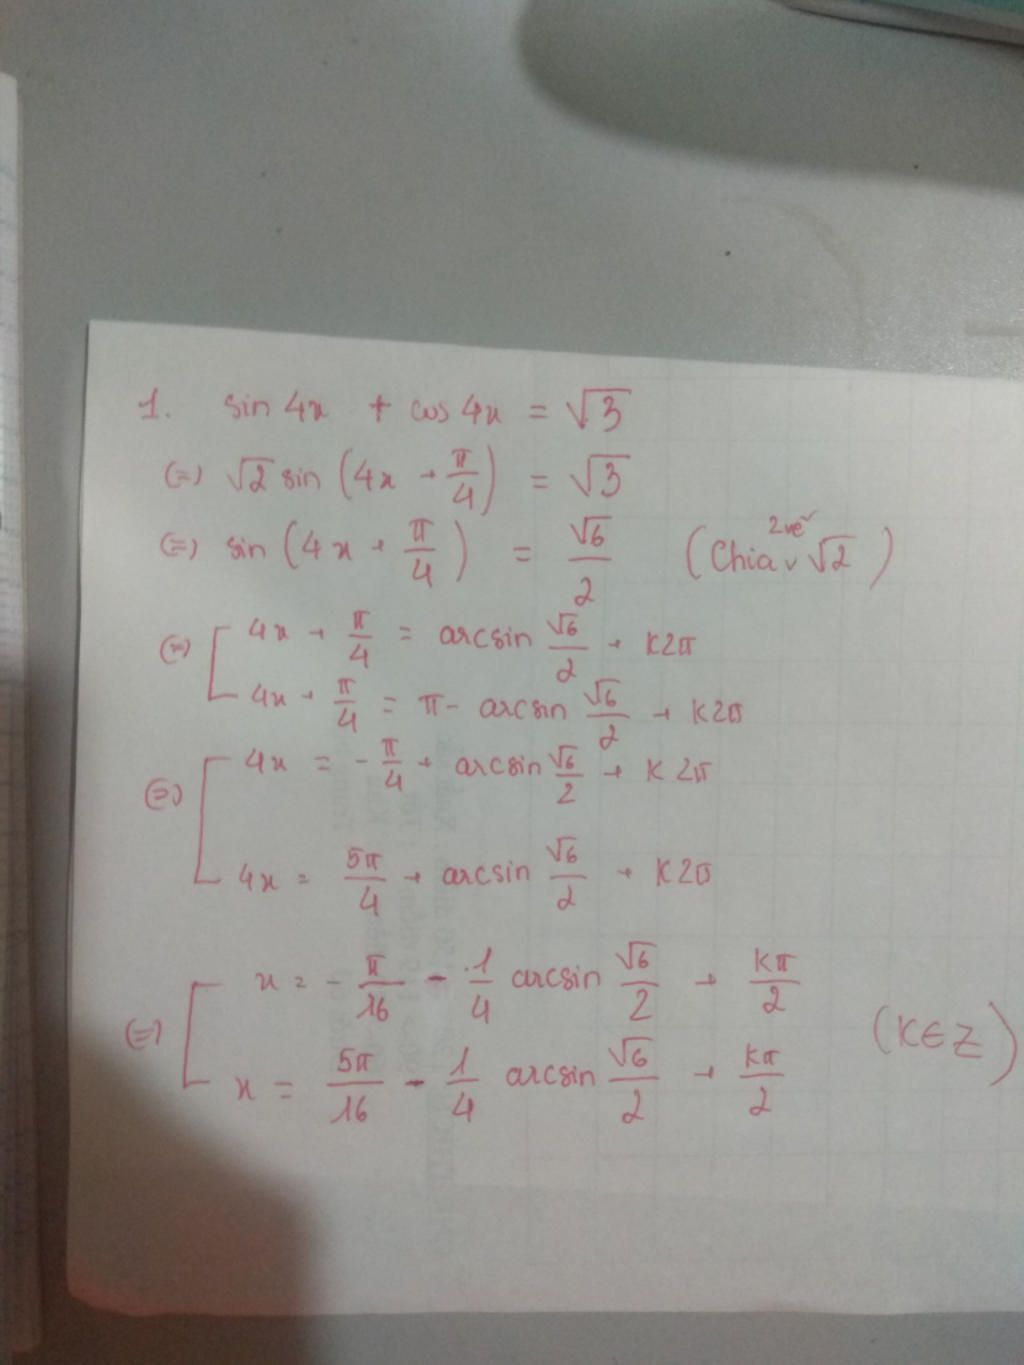 1. sin 4x + cos 4x = √3
(=) √2 sin (4x + π/4) = √3
(=) sin (4x + π/4) = √6/2 (Chia 2 vế √2)
(=) [ 4x + π/4 = arcsin √6/2 + K2π
4x + π/4 = π - arcsin √6/2 + K2π
(=) [ 4x = -π/4 + arcsin √6/2 + K2π
4x = 5π/4 + arcsin √6/2 + K2π
(=) [ x = -π/16 - 1/4 arcsin √6/2 + Kπ/2
x = 5π/16 - 1/4 arcsin √6/2 + Kπ/2 (K∈Z)